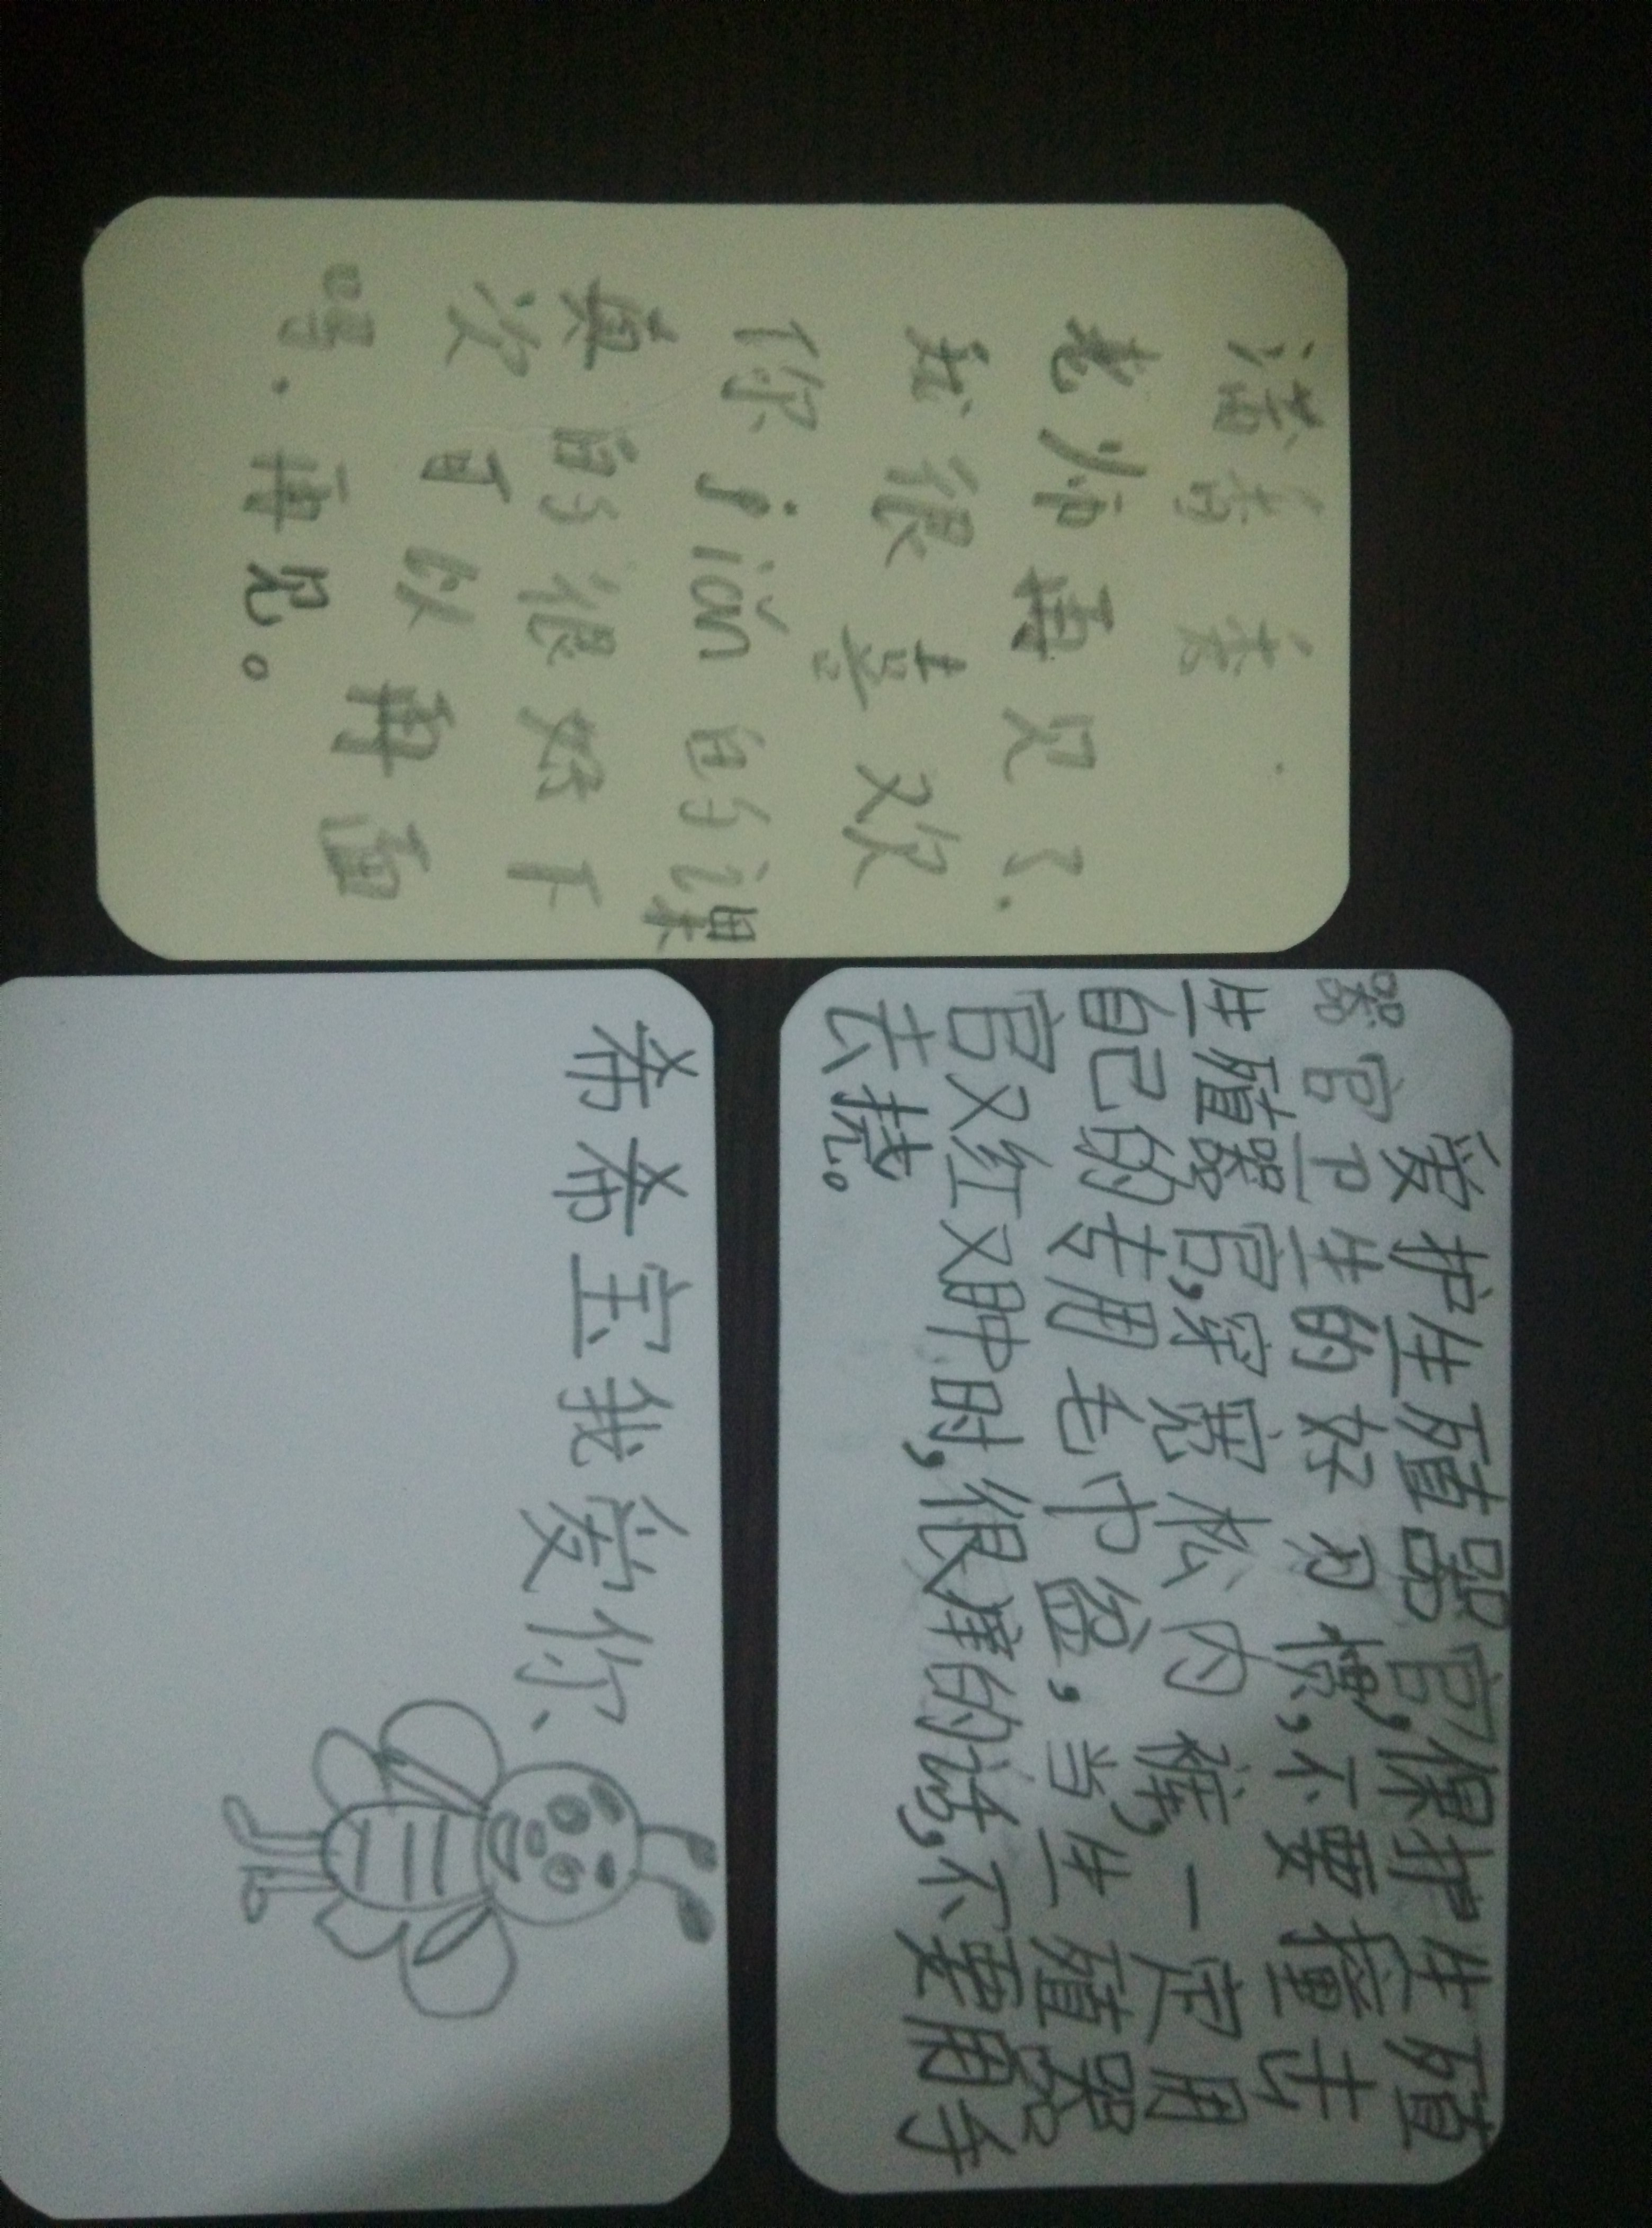 老师再见了.
我很喜欢
你jiǎn的课
真的很好下
次可以再面
再见。
爱护生殖器官,保护生殖
器官卫生的好习惯,不要撞击
生殖器官,穿宽松内裤,一定用
自己的专用毛巾盆,当生殖器
官又红又肿时,很痒的话,不要用手
去挠。
希希宝我爱你、